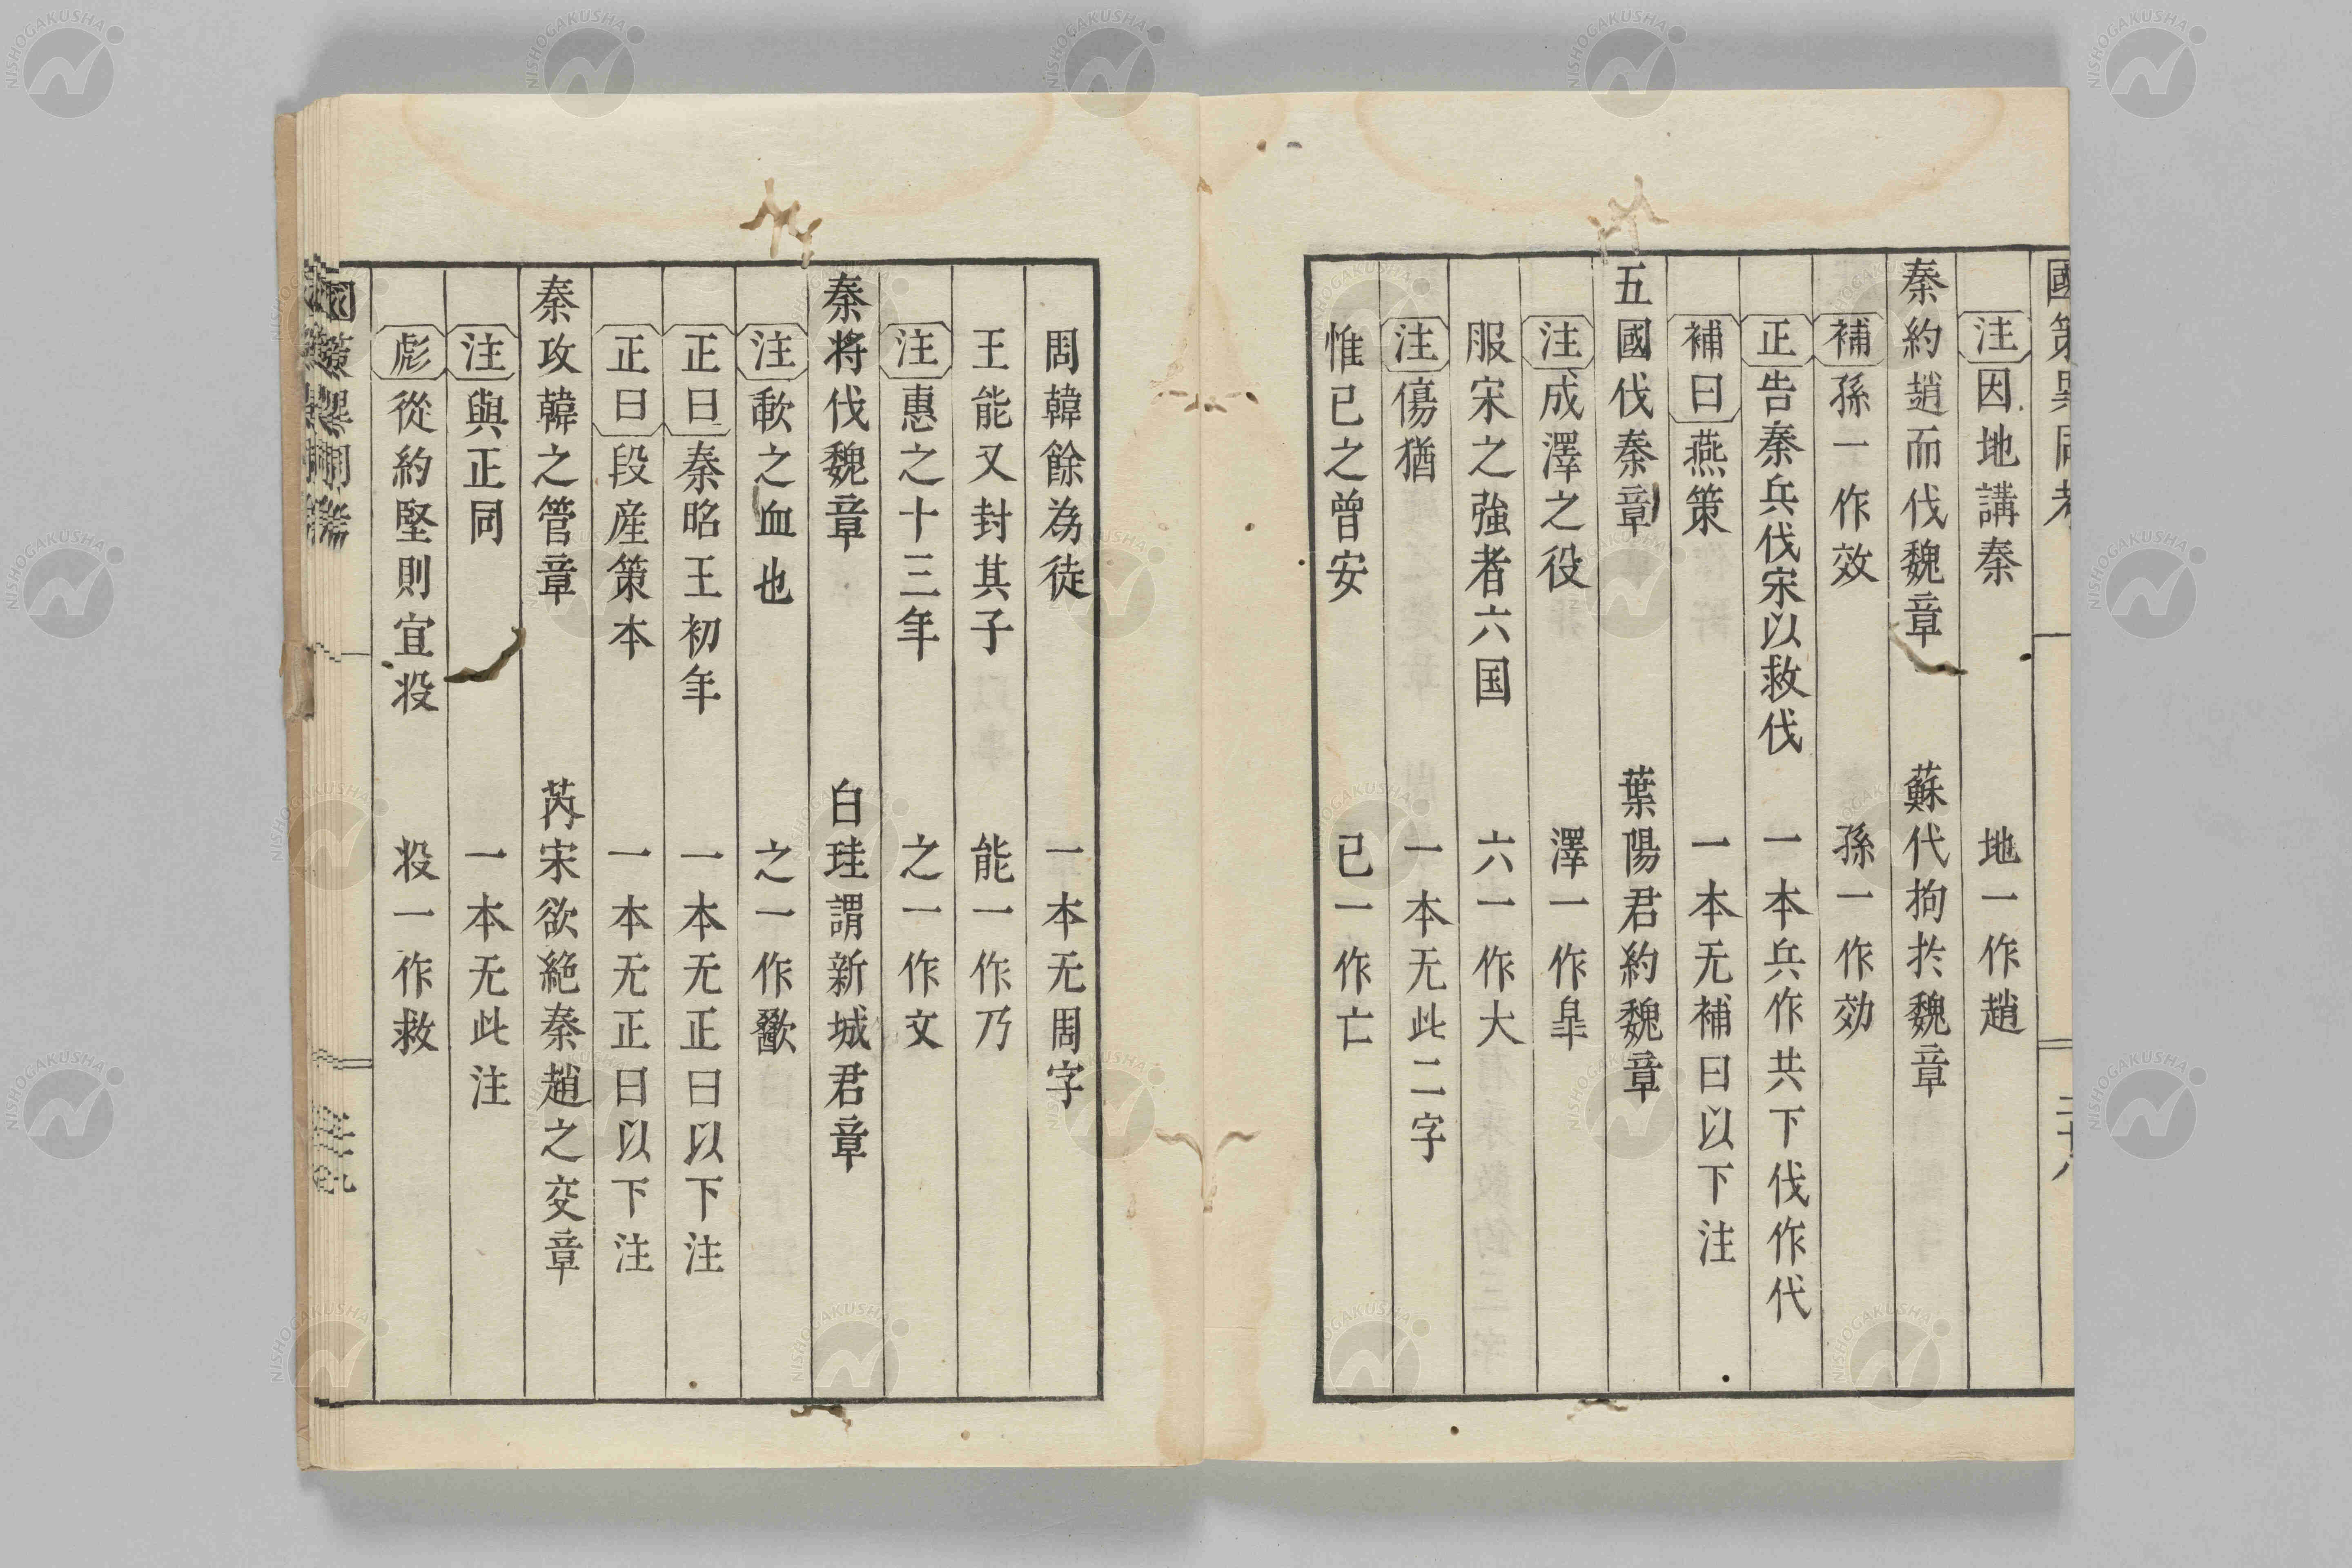 注因地講秦　地一作趙
秦約趙而伐魏章　蘇代拘於魏章
補孫一作效　孫一作効
正告秦兵伐宋以救伐　一本兵作共下伐作代
補曰燕策　一本无補曰以下注
五國伐秦章　葉陽君約魏章
注成澤之役　澤一作皐
服宋之強者六国　六一作大
注傷猶　一本无此二字
惟已之曾安　已一作亡
周韓餘為徒　一本无周字
王能又封其子　能一作乃
注惠之十三年　之一作文
秦将伐魏章　白珪謂新城君章
注歃之血也　之一作歠
正曰秦昭王初年　一本无正曰以下注
正曰段産策本　一本无正曰以下注
秦攻韓之管章　芮宋欲絶秦趙之交章
注與正同　一本无此注
彪從約堅則宜投　投一作救
NISHOGAKUSHA